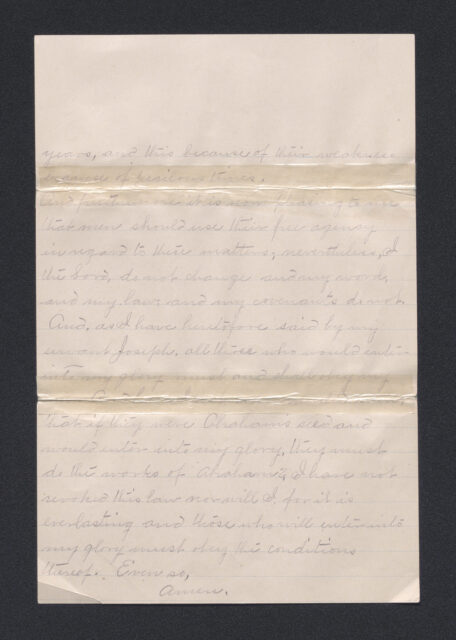 years, and this because of their weakness
because of perilous times.
And furthermore it is now pleasing to me
that men should use their free agency
in regard to these matters; nevertheless, I
the Lord, do not change and my word,
and my law, and my covenants do not.
And, as I have heretofore said by my
servant Joseph. all those who would enter
into my glory must and shall obey my
that if they were Abraham's seed and
would enter into my glory, they must
do the works of Abraham. I have not
revoked this law nor will I. for it is
everlasting and those who will enter into
my glory must obey the conditions
thereof. Even so,
Amen.